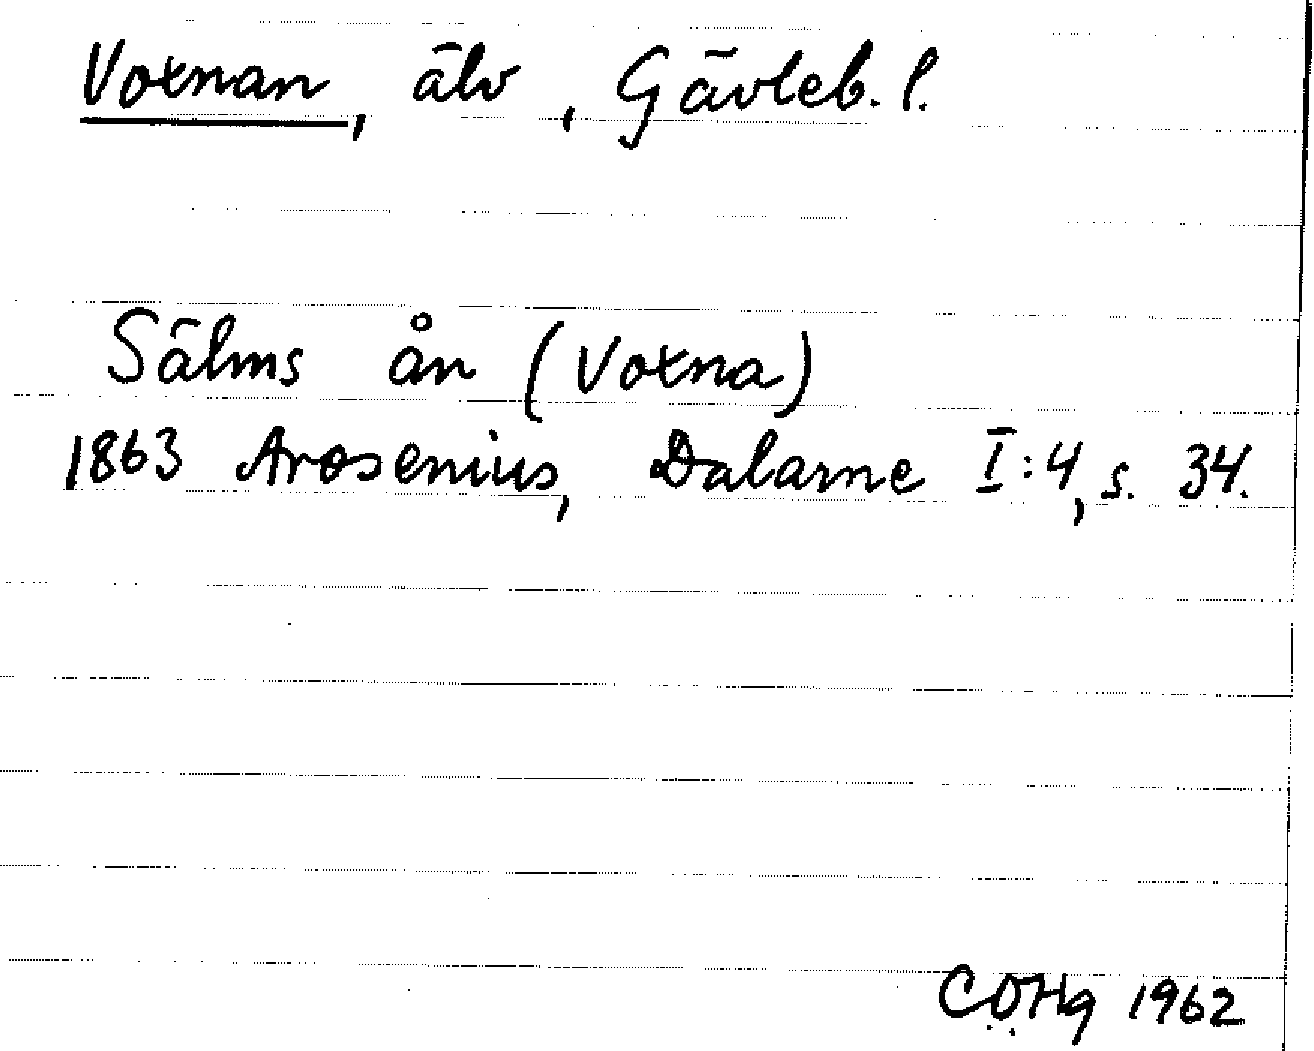 Voxnan, älv, Gävleb. l.
Sälms ån (Voxna)
1863 Arosenius, Dalarne I:4, s. 34.
COHg 1962